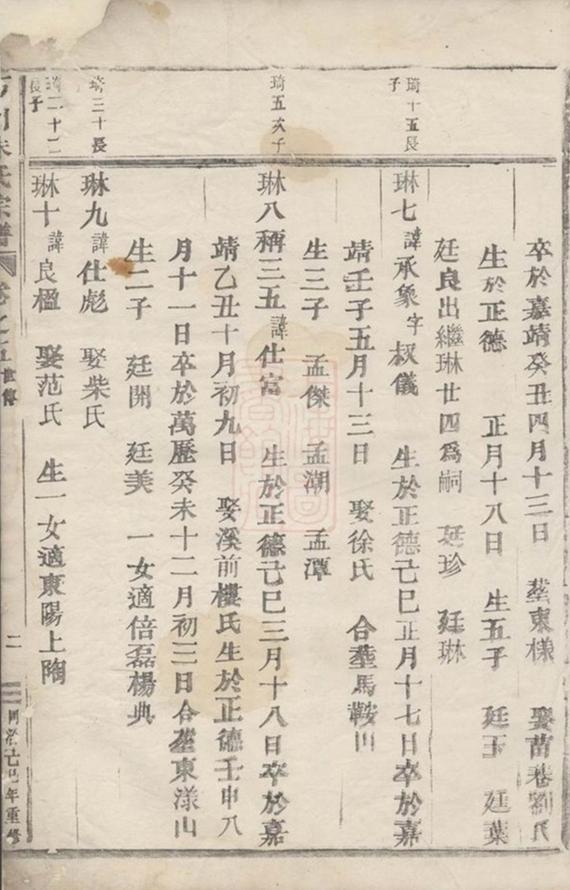 卒於嘉靖癸丑四月十三日 塟東樣 娶苗巷劉氏
生於正德 正月十八日 生五子 廷玉 廷葉
廷良出繼琳廿四爲嗣 廷珍 廷琳
琦十五長子
琳七諱承象字叔儀 生於正德己巳正月十七日卒於嘉
靖壬子五月十三日 娶徐氏 合塟馬鞍山
生三子 孟傑 孟潮 孟潭
琦五次子
琳八稱三五諱仕富 生於正德己巳三月十八日卒於嘉
靖乙丑十月初九日 娶溪前樓氏生於正德壬申八
月十一日卒於萬歷癸未十二月初三日合塟東漾山
生二子 廷開 廷美 一女適倍磊楊典
琦三十長
琳九諱仕彪 娶柴氏
琦二十二長子
琳十諱良楹 娶范氏 生一女適東陽上陶
朱氏宗譜 卷之 世傳 二 同治己巳年重修